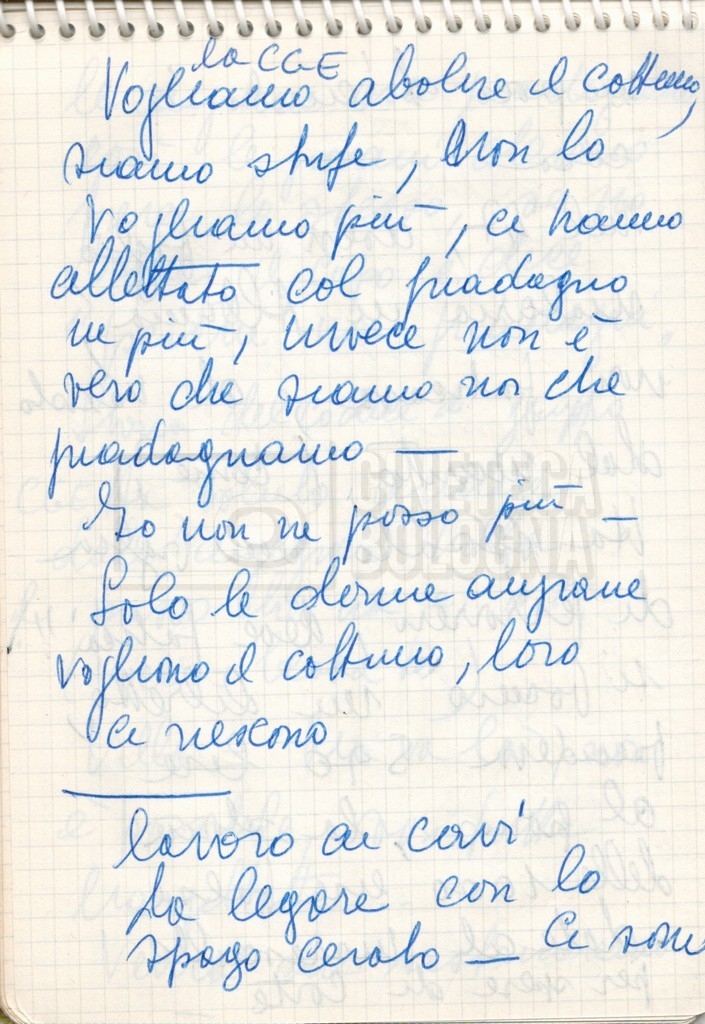 la CGE
Vogliamo abolire il cottimo,
siamo stufe, non lo
vogliamo più, ci hanno
allettato col guadagno
in più, invece non è
vero che siamo noi che
guadagnamo —
Io non ne posso più —
Solo le donne anziane
vogliono il cottimo, loro
ci riescono
lavoro ai cavi
da legare con lo
spago cerato — Ci sono
CINETECA
BOLOGNA